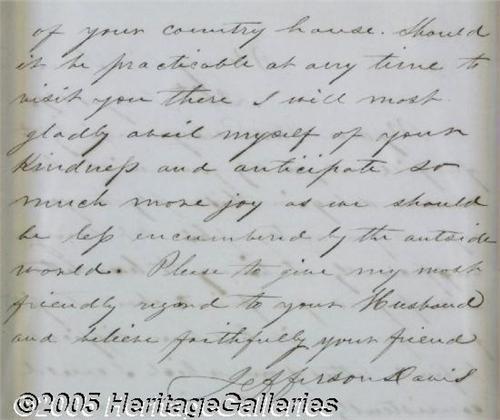 of your country house. Should
it be practicable at any time to
visit you there I will most
gladly avail myself of your
kindness and anticipate so
much more joy as we should
be less encumbered by the outside
world. Please to give my most
friendly regard to your Husband
and believe faithfully your friend
Jefferson Davis
©2005 HeritageGalleries